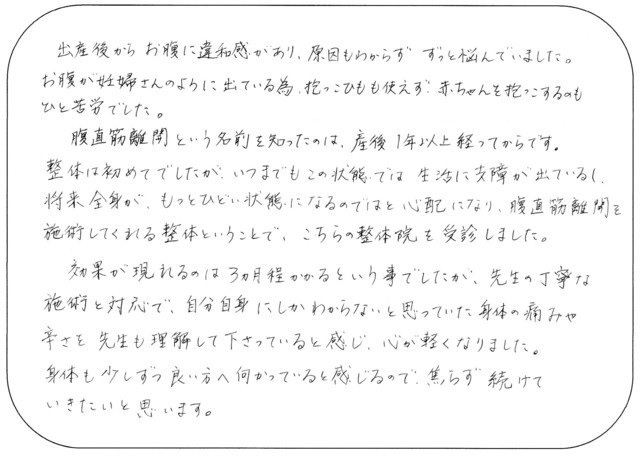 出産後から お腹に違和感があり、原因もわからず ずっと悩んでいました。
お腹が妊婦さんのように出ている為、抱っこひもも使えず、赤ちゃんを抱っこするのも
ひと苦労でした。
腹直筋離開という名前を知ったのは、産後1年以上経ってからです。
整体は初めてでしたが、いつまでもこの状態では 生活に支障が出ているし、
将来全身が、もっとひどい状態になるのではと心配になり、腹直筋離開を
施術してくれる整体ということで、こちらの整体院を受診しました。
効果が現れるのは3ヵ月程かかるという事でしたが、先生の丁寧な
施術と対応で、自分自身にしかわからないと思っていた身体の痛みや
辛さを先生も理解して下さっていると感じ、心が軽くなりました。
身体も少しずつ良い方へ向かっていると感じるので、焦らず続けて
いきたいと思います。